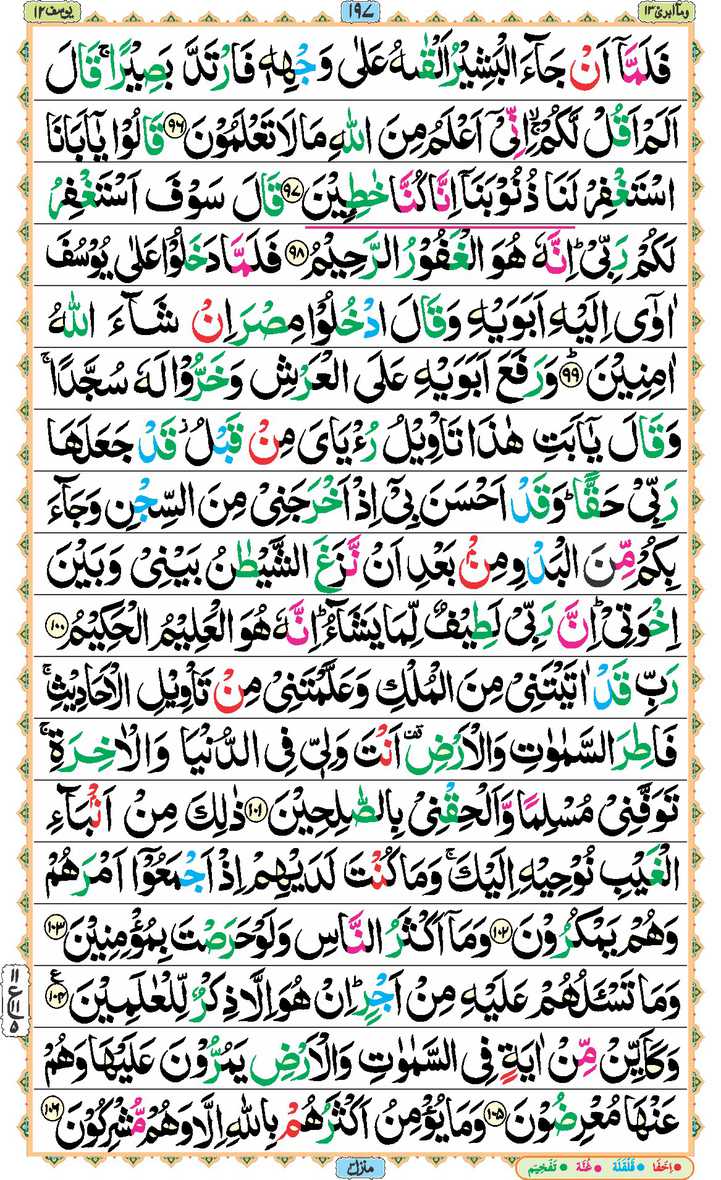 وما ابرئ ١٣
١٩٧
يوسف ١٢
فَلَمَّاۤ اَنْ جَآءَ الْبَشِیْرُ اَلْقٰىهُ عَلٰی وَجْهِهٖ فَارْتَدَّ بَصِیْرًا ۚ قَالَ
اَلَمْ اَقُلْ لَّكُمْ ۙۚ اِنِّیْۤ اَعْلَمُ مِنَ اللّٰهِ مَا لَا تَعْلَمُوْنَ ٩٦ قَالُوْا یٰۤاَبَانَا
اسْتَغْفِرْ لَنَا ذُنُوْبَنَاۤ اِنَّا كُنَّا خٰطِـِٕیْنَ ٩٧ قَالَ سَوْفَ اَسْتَغْفِرُ
لَكُمْ رَبِّیْ ؕ اِنَّهٗ هُوَ الْغَفُوْرُ الرَّحِیْمُ ٩٨ فَلَمَّا دَخَلُوْا عَلٰی یُوْسُفَ
اٰوٰۤی اِلَیْهِ اَبَوَیْهِ وَقَالَ ادْخُلُوْا مِصْرَ اِنْ شَآءَ اللّٰهُ
اٰمِنِیْنَ ؕ ٩٩ وَرَفَعَ اَبَوَیْهِ عَلَی الْعَرْشِ وَخَرُّوْا لَهٗ سُجَّدًا ۚ
وَقَالَ یٰۤاَبَتِ هٰذَا تَاْوِیْلُ رُءْیَایَ مِنْ قَبْلُ ؗ قَدْ جَعَلَهَا
رَبِّیْ حَقًّا ؕ وَقَدْ اَحْسَنَ بِیْۤ اِذْ اَخْرَجَنِیْ مِنَ السِّجْنِ وَجَآءَ
بِكُمْ مِّنَ الْبَدْوِ مِنْۢ بَعْدِ اَنْ نَّزَغَ الشَّیْطٰنُ بَیْنِیْ وَبَیْنَ
اِخْوَتِیْ ؕ اِنَّ رَبِّیْ لَطِیْفٌ لِّمَا یَشَآءُ ؕ اِنَّهٗ هُوَ الْعَلِیْمُ الْحَكِیْمُ ١٠٠
رَبِّ قَدْ اٰتَیْتَنِیْ مِنَ الْمُلْكِ وَعَلَّمْتَنِیْ مِنْ تَاْوِیْلِ الْاَحَادِیْثِ ۚ
فَاطِرَ السَّمٰوٰتِ وَالْاَرْضِ ۫ اَنْتَ وَلِیّٖ فِی الدُّنْیَا وَالْاٰخِرَةِ ۚ
تَوَفَّنِیْ مُسْلِمًا وَّاَلْحِقْنِیْ بِالصّٰلِحِیْنَ ١٠١ ذٰلِكَ مِنْ اَنْۢبَآءِ
الْغَیْبِ نُوْحِیْهِ اِلَیْكَ ۚ وَمَا كُنْتَ لَدَیْهِمْ اِذْ اَجْمَعُوْۤا اَمْرَهُمْ
وَهُمْ یَمْكُرُوْنَ ١٠٢ وَمَاۤ اَكْثَرُ النَّاسِ وَلَوْ حَرَصْتَ بِمُؤْمِنِیْنَ ١٠٣
وَمَا تَسْـَٔلُهُمْ عَلَیْهِ مِنْ اَجْرٍ ؕ اِنْ هُوَ اِلَّا ذِكْرٌ لِّلْعٰلَمِیْنَ ١٠٤ ع
١١
ع ١١
٥
وَكَاَیِّنْ مِّنْ اٰیَةٍ فِی السَّمٰوٰتِ وَالْاَرْضِ یَمُرُّوْنَ عَلَیْهَا وَهُمْ
عَنْهَا مُعْرِضُوْنَ ١٠٥ وَمَا یُؤْمِنُ اَكْثَرُهُمْ بِاللّٰهِ اِلَّا وَهُمْ مُّشْرِكُوْنَ ١٠٦
منزل ٣
اِخْفَا قَلْقَلَة غُنَّة تَفْخِیْم